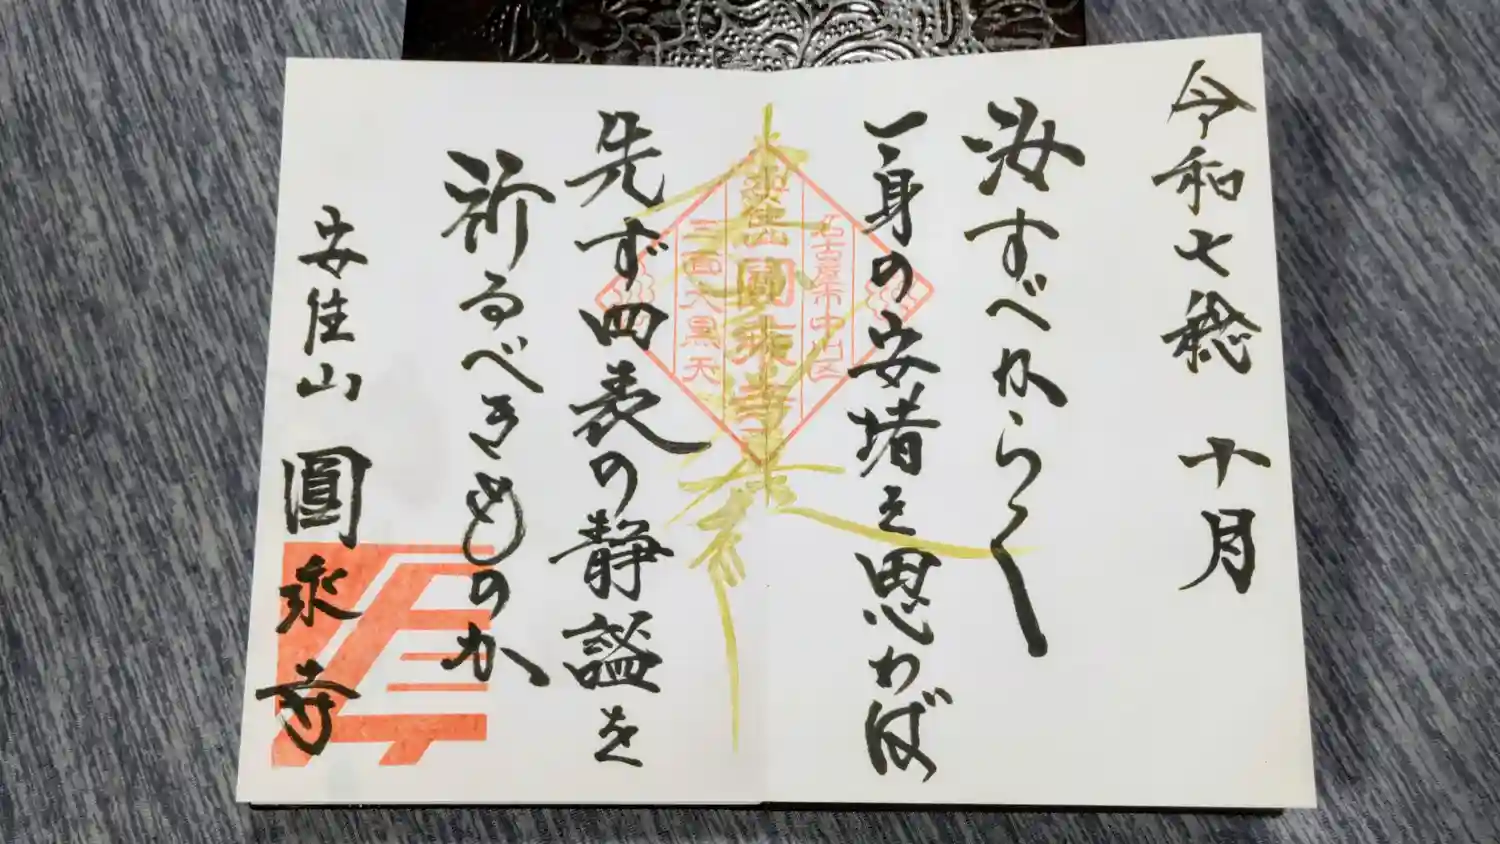 令和七稔 十月
汝すべからく
一身の安堵を思わば
先ず四表の静謐を
祈るべきものか
安住山 圓泉寺
名古屋市中川区
安住山 圓泉寺
三面大黒天